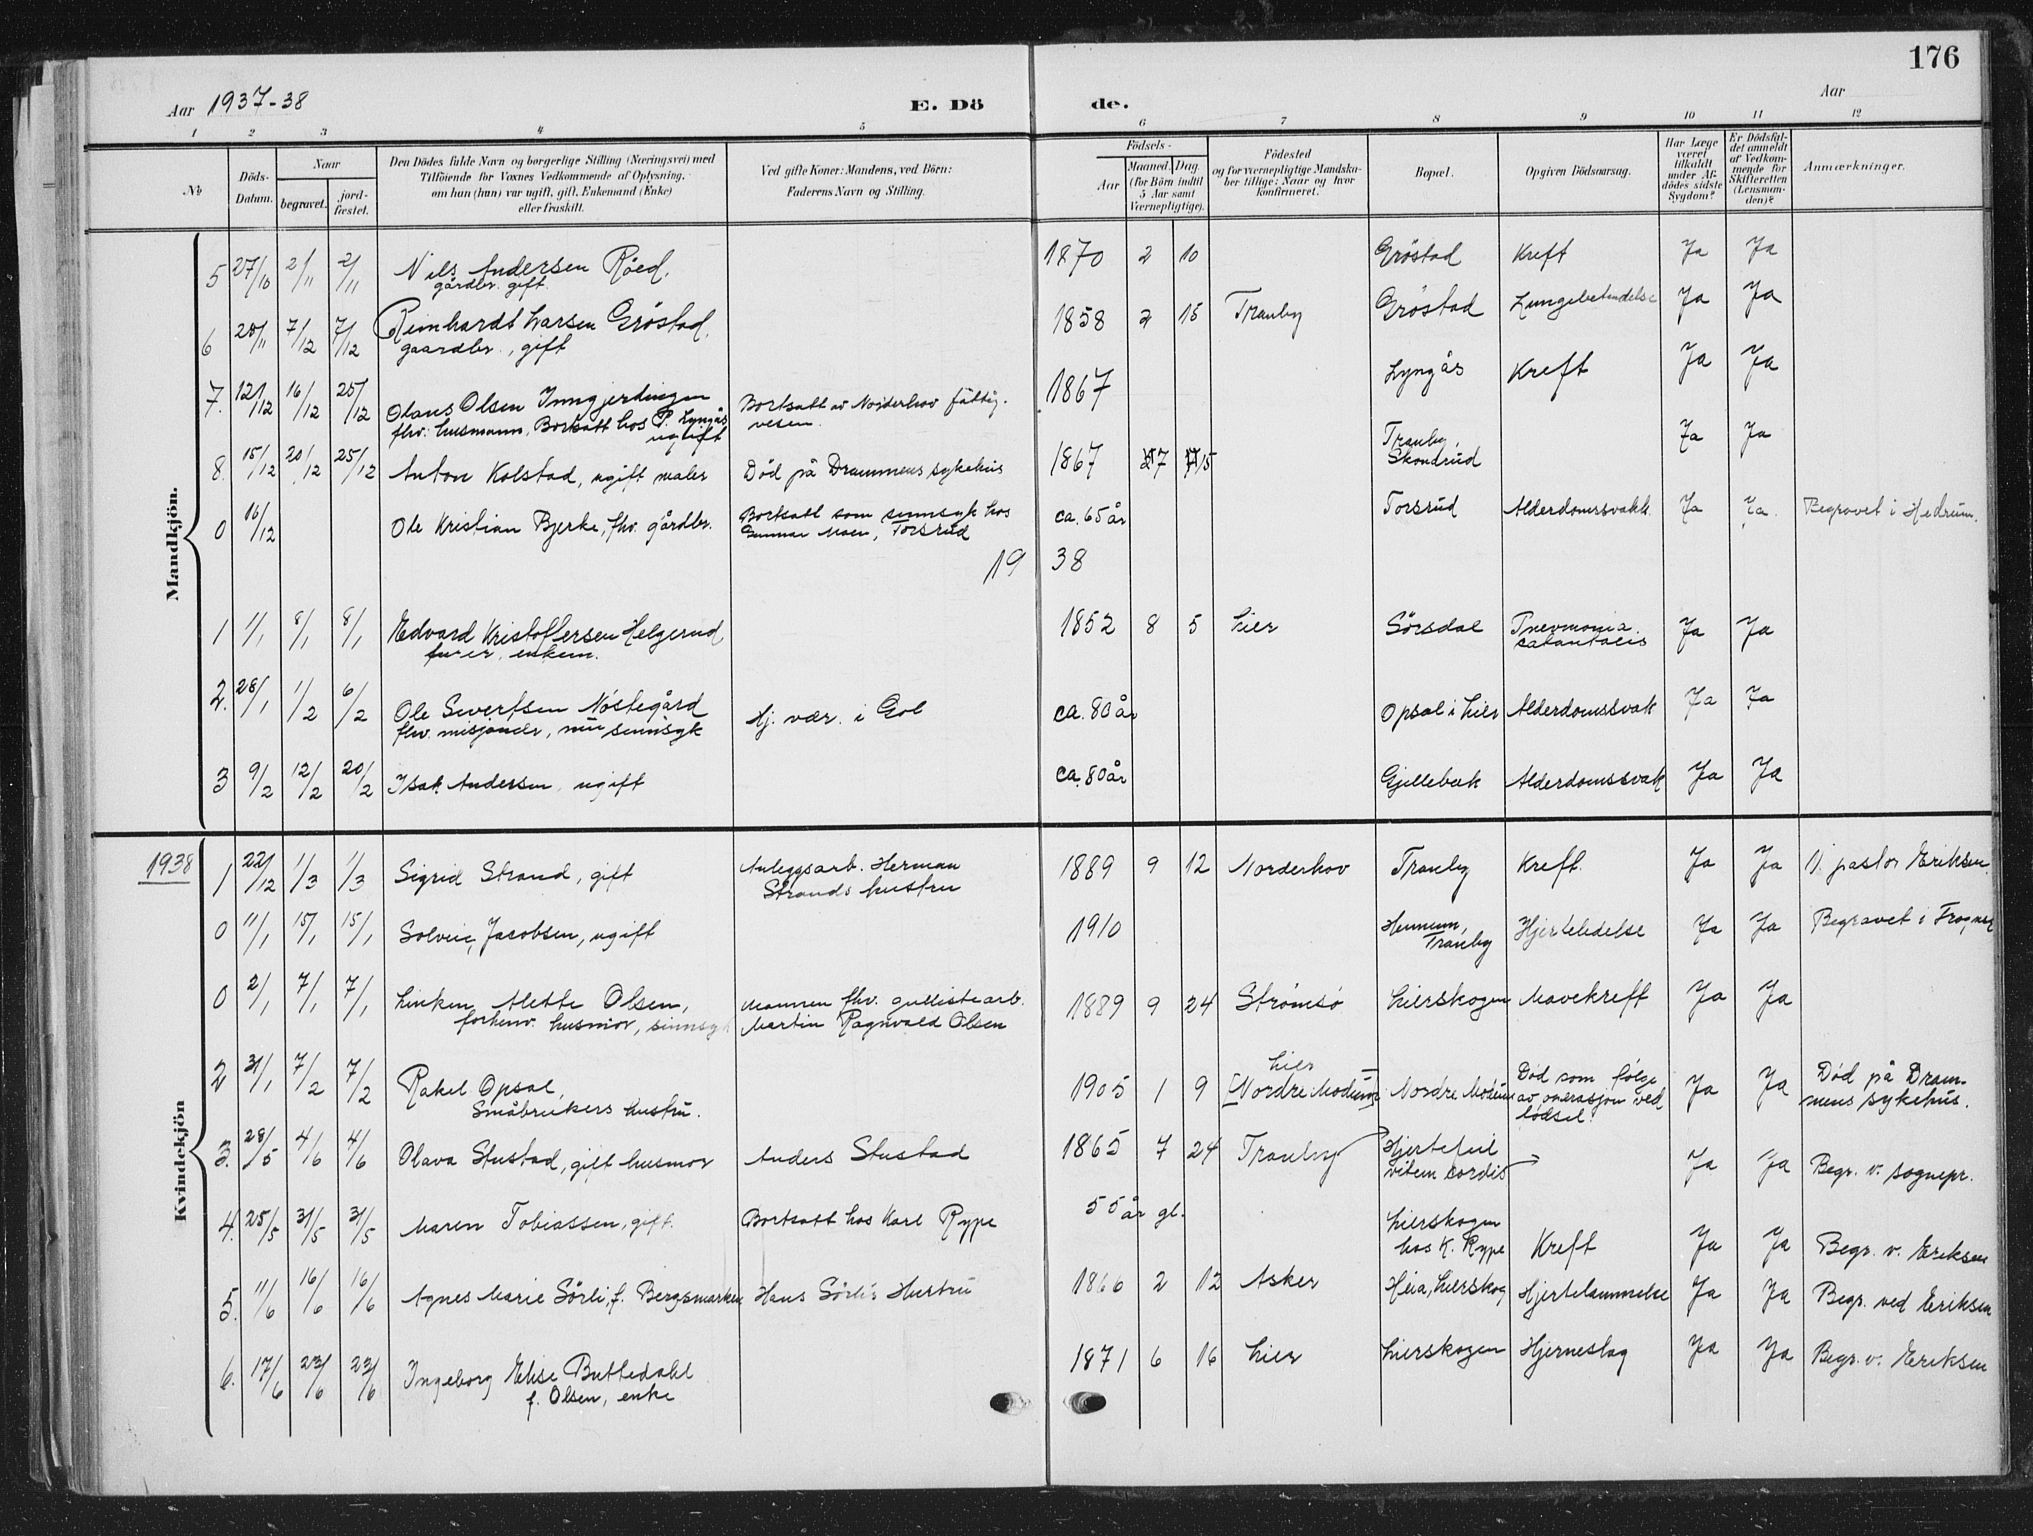 176
Aar 1937-38
E. Dö de.
Aar
1 2 3 4 5 6 7 8 9 10 11 12
№
Döds-Datum.
Naar
begravet.
jord-fæstet.
Den Dödes fulde Navn og borgerlige Stilling (Næringsvei) med
Tilföiende for Voxnes Vedkommende af Oplysning,
om han (hun) var ugift, gift, Enkemand (Enke)
eller fraskilt.
Ved gifte Koner: Mandens, ved Börn:
Faderens Navn og Stilling.
Födsels-
Aar
Maaned. Dag.
(for Börn indtil
5 Aar samt
Værnepligtige).
Födested
og for værnepligtige Mandska-
ber tillige: Naar og hvor
konfirmeret.
Bopæl.
Opgiven Dödsaarsag.
Har Læge
været
tilkaldt
under Af-
dödes sidste
Sygdom?
Er Dödsfal-
det anmeldt
af Vedkom-
mende for
Skifteretten
(Lensman-
den)?
Anmærkninger.
Mandkjön.
5 27/10 2/11 2/11 Nils Andersen Røed, 1870 2 10 Grøstad Kreft Ja Ja
gårdbr. gift.
6 28/11 7/12 7/12 Reinhardt Larsen Grøstad, 1858 2 15 Tranby Grøstad Lungebetendelse Ja Ja
gaardbr., gift
7. 12/12 16/12 25/12 Olaus Olsen Inngjerdingen Bortsatt av Norderhov fattig- 1867 Lyngås Kreft Ja Ja
fhv. husmann, Bortsatt hos P. Lyngås vesen.
ugift
8. 15/12 20/12 25/12 Anton Kolstad, ugift maler Død på Drammens sykehus 1867 7 15 Tranby, Ja Ja
Skondrud
0 16/12 Ole Kristian Bjerke, fhv. gårdbr. Bortsatt som sinnsyk hos ca. 65 år Torsrud Alderdomssvakk. Ja Ja Begravet i Hedrum.
Gunnar Moen, Torsrud
1938
1 1/1 8/1 8/1 Edvard Kristoffersen Helgerud 1852 8 5 Lier Sørsdal Pnevmonia Ja Ja
enkem.
2. 28/1 1/2 6/2 Ole Sivertsen Nøstegård Hj. vær. i Gol ca. 80 år Opsal i Lier Alderdomssvak Ja Ja
fhv. misjonær, nu sinnsyk
3 9/2 12/2 20/2 Isak Andersen, ugift ca. 80 år Gjellebæk Alderdomssvak Ja Ja
Kvindekjön
1938
1 22/12 1/3 1/3 Sigrid Strand, gift Anleggsarb. Herman 1889 9 12 Norderhov Tranby Kreft. Ja Ja V. pastor Eriksen.
Strands hustru
0 11/1 15/1 15/1 Solveig Jacobsen, ugift 1910 Hennum, Hjertelidelse Ja Ja Begravet i Frogner
Tranby
0 2/1 7/1 7/1 Linken Alette Olsen, Mannen fhv. gullistearb. 1889 9 24 Strømsø Lierskogen Mavekreft Ja Ja
forhenv. husmor, sinnsyk Martin Ragnvald Olsen
2 31/1 7/2 7/2 Rakel Opsal, 1905 1 9 Lier [Nordre Modum] Nordre Modum Død som følge Ja Ja Død på Dram-
Småbrukers hustru. av operasjon ved mens sykehus.
fødsel.
3. 28/5 4/6 4/6 Olava Stustad, gift husmor Anders Stustad 1865 7 24 Tranby Hjertefeil Ja Ja Begr. v. sognepr.
vitem cordis
4. 25/5 31/5 31/5 Maren Tobiassen, gift. Bortsatt hos Karl Rype 55 år gl. Lierskogen Kreft Ja Ja Begr. v. Eriksen
hos K. Rype
5. 11/6 16/6 16/6 Agnes Marie Sørli, f. Bergsmarken Hans Sørlis Hustru 1866 2 12 Asker Heia, Lierskog Hjertelammelse Ja Ja Begr. ved Eriksen
6. 17/6 23/6 23/6 Ingeborg Elise Buttedahl 1871 6 16 Lier Lierskogen Hjerneslag Ja Ja Begr. v. Eriksen
f. Olsen, enke